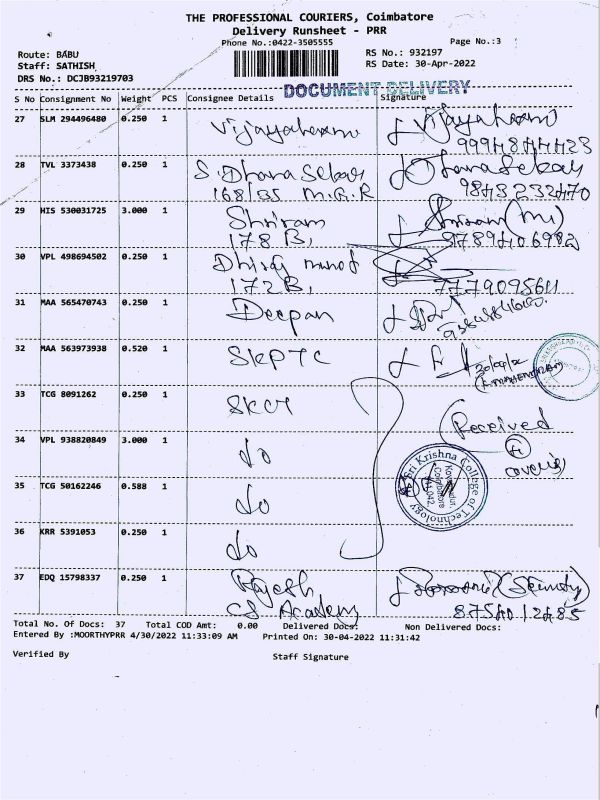 THE PROFESSIONAL COURIERS, Coimbatore
Delivery Runsheet - PRR
Phone No.:0422-3505555
Page No.:3
Route: BABU
Staff: SATHISH
DRS No.: DCJB93219703
RS No.: 932197
RS Date: 30-Apr-2022
DOCUMENT DELIVERY
S No Consignment No Weight PCS Consignee Details Signature
27 SLM 294496480 0.250 1 Vijayaharan Vijayaharan
28 TVL 3373438 0.250 1 S. Dhanasekar Dhanasekar
168/35 M.G.R 9843232470
29 HIS 530031725 3.000 1 Shriram
178 B, 9789406982
30 VPL 498694502 0.250 1 Dhiraj
172 B, 7779095611
31 MAA 565470743 0.250 1 Deepan
32 MAA 563973938 0.520 1 SKPTC
33 TCG 8091262 0.250 1 SKCT Received
34 VPL 938820849 3.000 1 do
Sri Krishna College of Technology
Kovaipudur,
Coimbatore
641 042
35 TCG 50162246 0.588 1 do
36 KRR 5391053 0.250 1 do
37 EDQ 15798337 0.250 1 Rajesh
CS Academy
Total No. Of Docs: 37 Total COD Amt: 0.00 Delivered Docs: Non Delivered Docs:
Entered By :MOORTHYPRR 4/30/2022 11:33:09 AM Printed On: 30-04-2022 11:31:42
Verified By Staff Signature